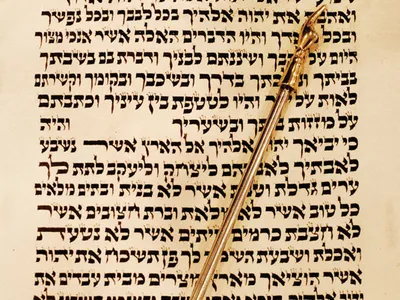 ואהבת את יהוה אלהיך בכל לבבך ובכל נפשך
ובכל והיו הדברים האלה אשר אנכי מצוך
היום על ושננתם לבניך ודברת בם בשבתך
בביתך בדרך ובשכבך ובקומך וקשרתם
לאות על והיו לטטפת בין עיניך וכתבתם
על מזזות ובשעריך והיה
כי יביאך אלהיך אל הארץ אשר נשבע
לאבתיך ליצחק וליעקב לתת לך
ערים גדלת אשר לא בנית ובתים מלאים
כל טוב אשר לא וברת חצובים אשר
לא חצבת כרמים אשר לא נטעת
ואכלת ושבעת השמר לך פן תשכח את יהוה
אשר הוציאך מארץ מצרים מבית עבדים את